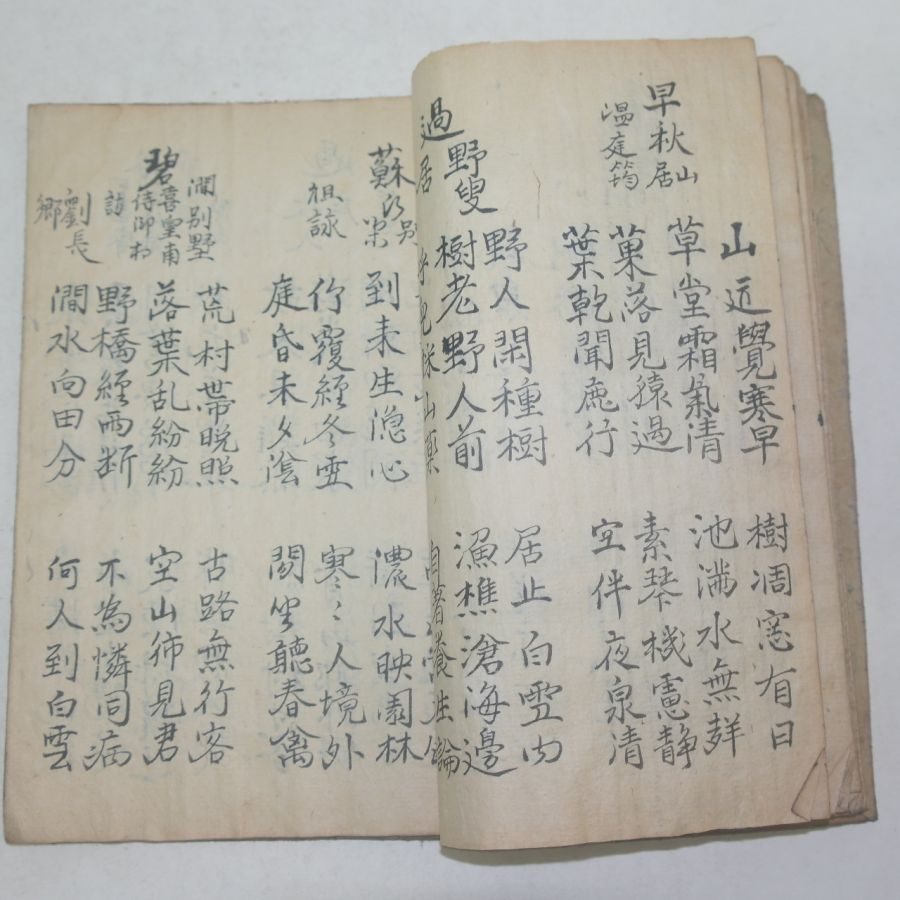 早秋山居
温庭筠
山近覺寒早 樹凋窓有日
草堂霜氣清 池満水無
菓落見猿過 素琴機慮静
葉乾聞鹿行 空伴夜泉清
過野叟居
野人閑種樹 居止白雲内
樹老野人前 漁樵滄海邊
呼児採山薬 自著養生論
蘇氏別業
祖詠
到来生隐心 濃水映園林
竹覆經冬雪 寒〻人境外
庭昏未夕陰 閑坐聽春禽
碧澗別墅喜皇甫侍御相訪
劉長卿
荒村帯晚照 古路無行客
落葉乱紛紛 空山独見君
野橋經雨断 不為憐同病
澗水向田分 何人到白雲